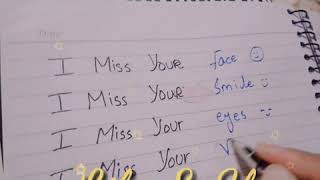 I Miss Your face ☺
I Miss Your Smile ☺
I Miss Your eyes ☺
I Miss Your